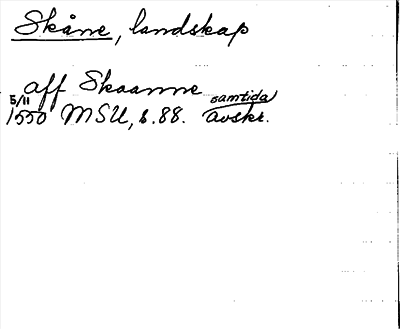 Skåne, landskap
aff Skaanne
5/11 samtida
1550 MSU, s. 88. avskr.